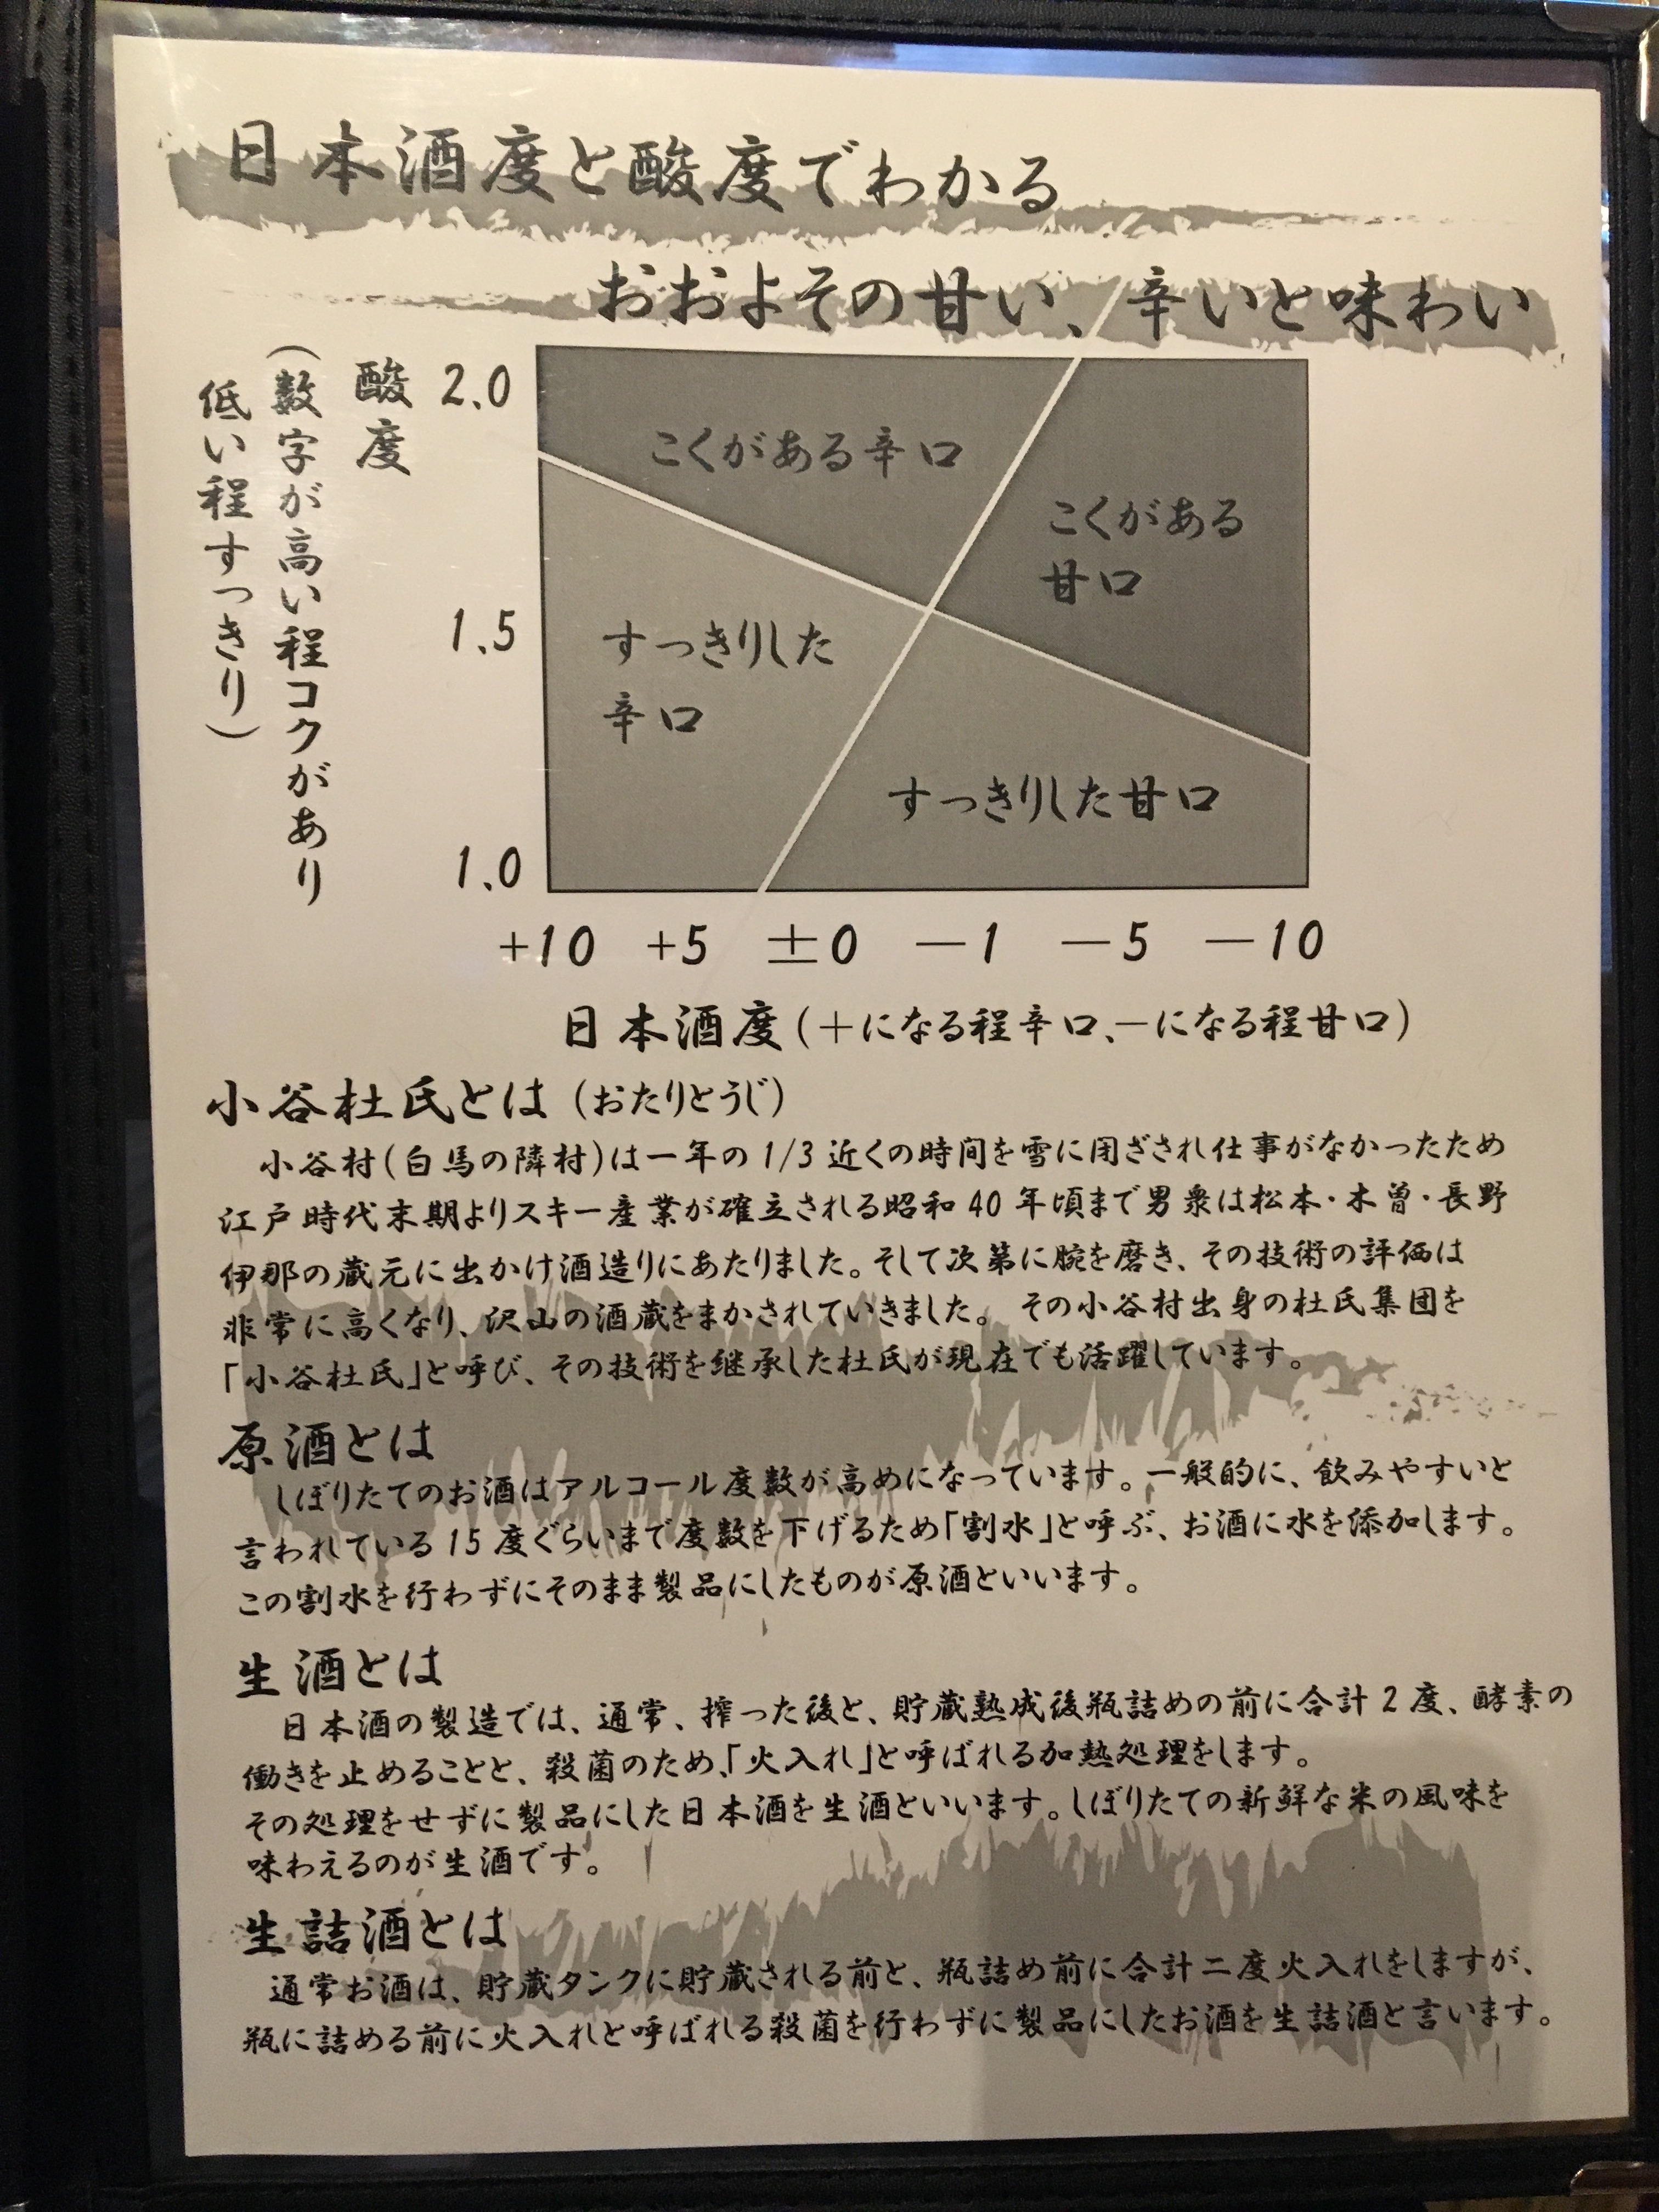 日本酒度と酸度でわかる
おおよその甘い、辛いと味わい
酸度
(数字が高い程コクがあり
低い程すっきり)
2.0
1.5
1.0
こくがある辛口
こくがある
甘口
すっきりした
辛口
すっきりした甘口
+10 +5 ±0 −1 −5 −10
日本酒度(+になる程辛口、−になる程甘口)
小谷杜氏とは(おたりとうじ)
小谷村(白馬の隣村)は一年の1/3近くの時間を雪に閉ざされ仕事がなかったため
江戸時代末期よりスキー産業が確立される昭和40年頃まで男衆は松本・木曽・長野
伊那の蔵元に出かけ酒造りにあたりました。そして次第に腕を磨き、その技術の評価は
非常に高くなり、沢山の酒蔵をまかされていきました。 その小谷村出身の杜氏集団を
「小谷杜氏」と呼び、その技術を継承した杜氏が現在でも活躍しています。
原酒とは
しぼりたてのお酒はアルコール度数が高めになっています。一般的に、飲みやすいと
言われている15度ぐらいまで度数を下げるため「割水」と呼ぶ、お酒に水を添加します。
この割水を行わずにそのまま製品にしたものが原酒といいます。
生酒とは
日本酒の製造では、通常、搾った後と、貯蔵熟成後瓶詰めの前に合計2度、酵素の
働きを止めることと、殺菌のため、「火入れ」と呼ばれる加熱処理をします。
その処理をせずに製品にした日本酒を生酒といいます。しぼりたての新鮮な米の風味を
味わえるのが生酒です。
生詰酒とは
通常お酒は、貯蔵タンクに貯蔵される前と、瓶詰め前に合計二度火入れをしますが、
瓶に詰める前に火入れと呼ばれる殺菌を行わずに製品にしたお酒を生詰酒と言います。